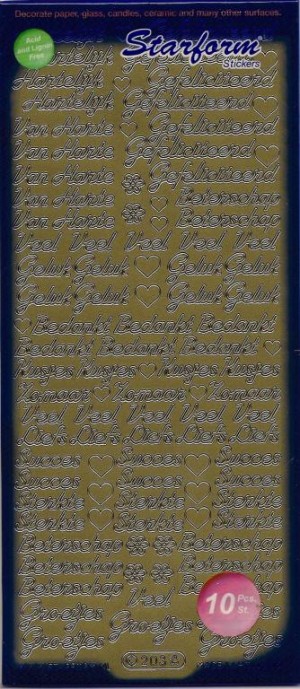 Decorate paper, glass, candles, ceramic and many other surfaces.
Acid and Lignin Free
Starform®
Stickers
Hartelijk
Hartelijk Gefeliciteerd
Hartelijk Gefeliciteerd
Van Harte Gefeliciteerd
Van Harte Gefeliciteerd
Van Harte Gefeliciteerd
Van Harte Beterschap
Van Harte Beterschap
Veel Veel Veel Veel Veel
Geluk Geluk Geluk Geluk
Geluk Geluk Geluk Geluk
Bedankt Bedankt Bedankt
Bedankt Bedankt Bedankt
Kusjes Kusjes Kusjes Kusjes
Zomaar Zomaar Zomaar
Veel Veel Veel Veel Veel
Liefs Liefs Liefs Liefs Liefs
Succes Succes Succes
Succes Succes Succes
Sterkte Sterkte Sterkte
Sterkte Sterkte Sterkte
Beterschap Beterschap
Beterschap Beterschap
Beterschap Veel
Groetjes Groetjes Groetjes
Groetjes Groetjes
10 Pcs. St.
203.4